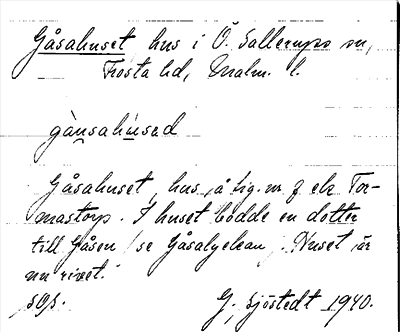 Gåsahuset hus i Ö. Sallerups sn,
Frosta hd, Malm. l.
gàusahùsad
Gåsahuset, hus å äg. nr 3 elr Tor-
mastorp. I huset bodde en dotter
till Gåsen (se Gåsalyckan). Huset är
nu rivet.
G. Sjöstedt 1940.